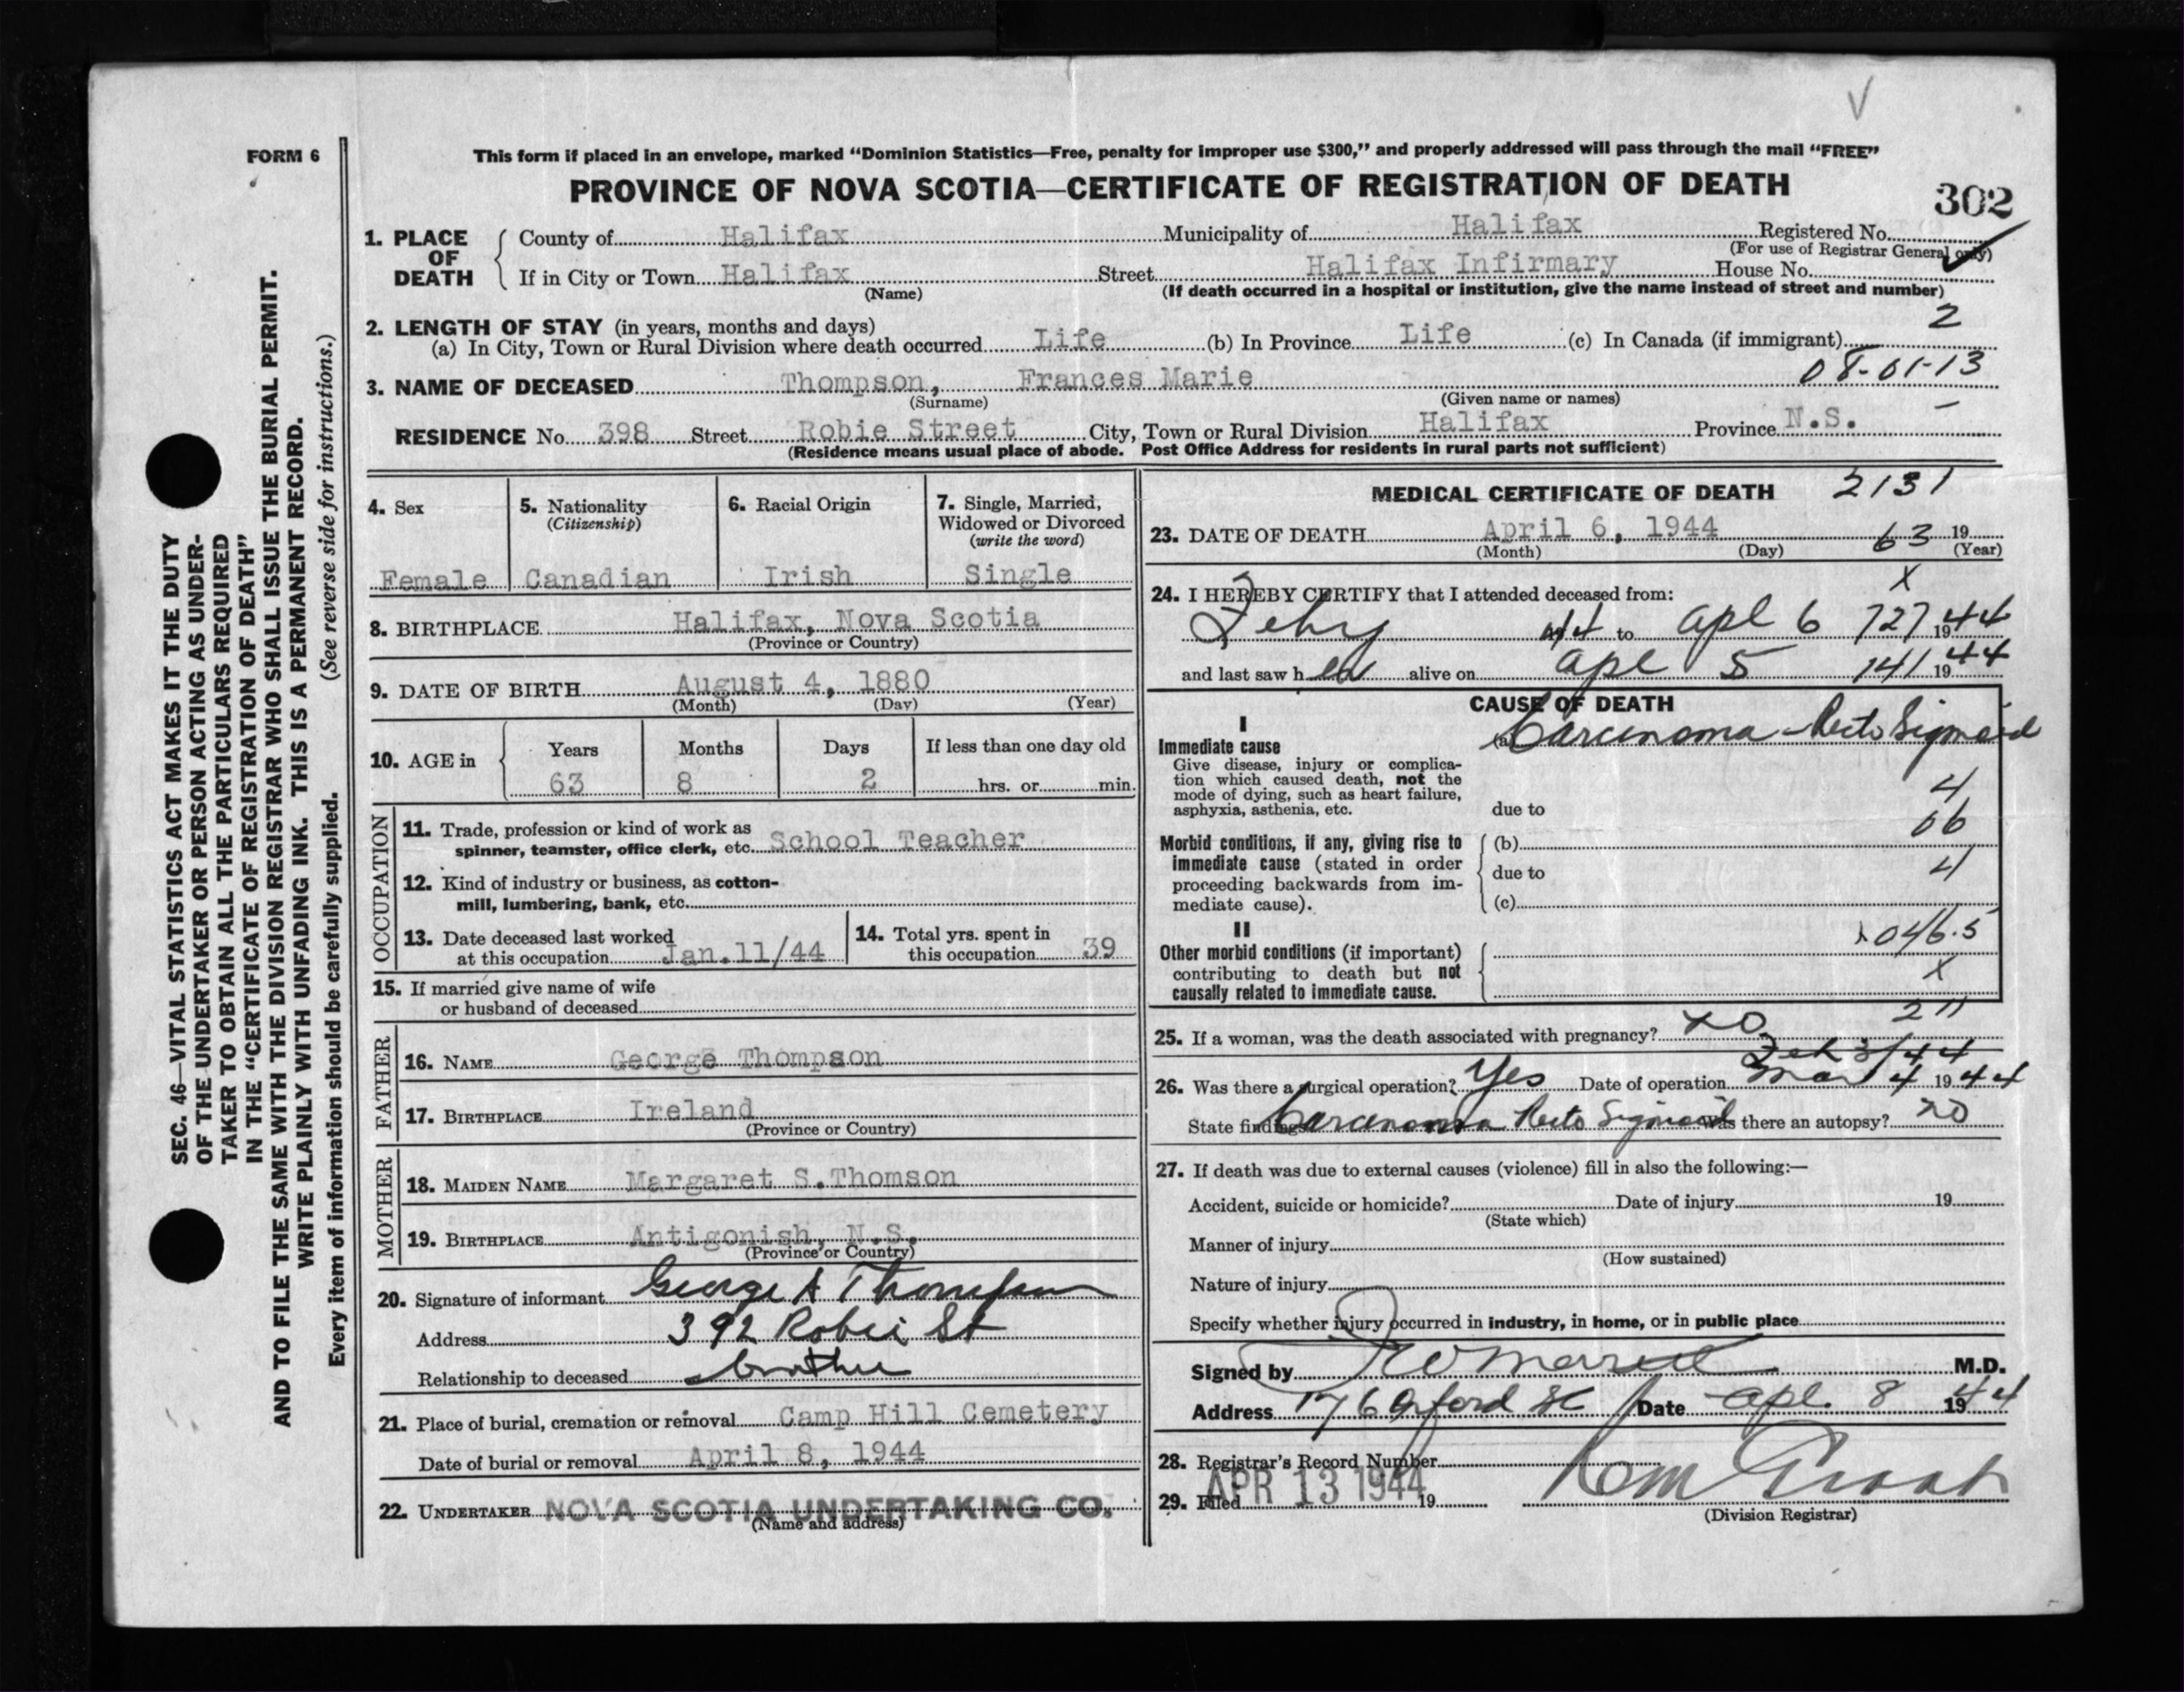 V
FORM 6
This form if placed in an envelope, marked “Dominion Statistics—Free, penalty for improper use $300,” and properly addressed will pass through the mail “FREE”
PROVINCE OF NOVA SCOTIA—CERTIFICATE OF REGISTRATION OF DEATH
302
1. PLACE OF DEATH
County of Halifax Municipality of Halifax Registered No.
(For use of Registrar General only)
If in City or Town Halifax Street Halifax Infirmary House No.
(Name) (If death occurred in a hospital or institution, give the name instead of street and number)
2. LENGTH OF STAY (in years, months and days) 2
(a) In City, Town or Rural Division where death occurred Life (b) In Province Life (c) In Canada (if immigrant)
08-01-13
3. NAME OF DECEASED Thompson, Frances Marie
(Surname) (Given name or names)
RESIDENCE No. 398 Street Robie Street City, Town or Rural Division Halifax Province N.S.
(Residence means usual place of abode. Post Office Address for residents in rural parts not sufficient)
SEC. 46—VITAL STATISTICS ACT MAKES IT THE DUTY
OF THE UNDERTAKER OR PERSON ACTING AS UNDER-
TAKER TO OBTAIN ALL THE PARTICULARS REQUIRED
IN THE “CERTIFICATE OF REGISTRATION OF DEATH”
AND TO FILE THE SAME WITH THE DIVISION REGISTRAR WHO SHALL ISSUE THE BURIAL PERMIT.
WRITE PLAINLY WITH UNFADING INK. THIS IS A PERMANENT RECORD.
Every item of information should be carefully supplied. (See reverse side for instructions.)
4. Sex
Female
5. Nationality
(Citizenship)
Canadian
6. Racial Origin
Irish
7. Single, Married,
Widowed or Divorced
(write the word)
Single
8. BIRTHPLACE Halifax, Nova Scotia
(Province or Country)
9. DATE OF BIRTH August 4, 1880
(Month) (Day) (Year)
10. AGE in
Years Months Days If less than one day old
63 8 2 hrs. or min.
OCCUPATION
11. Trade, profession or kind of work as
spinner, teamster, office clerk, etc. School Teacher
12. Kind of industry or business, as cotton-
mill, lumbering, bank, etc.
13. Date deceased last worked
at this occupation Jan.11/44
14. Total yrs. spent in
this occupation 39
15. If married give name of wife
or husband of deceased
FATHER
16. NAME George Thompson
17. BIRTHPLACE Ireland
(Province or Country)
MOTHER
18. MAIDEN NAME Margaret S.Thomson
19. BIRTHPLACE Antigonish, N.S.
(Province or Country)
20. Signature of informant George A Thompson
Address 392 Robie St
Relationship to deceased brother
21. Place of burial, cremation or removal Camp Hill Cemetery
Date of burial or removal April 8, 1944
22. UNDERTAKER NOVA SCOTIA UNDERTAKING CO.
(Name and address)
MEDICAL CERTIFICATE OF DEATH 2131
23. DATE OF DEATH April 6, 1944 63 19
(Month) (Day) (Year)
X
24. I HEREBY CERTIFY that I attended deceased from:
44 to Apl 6 727 1944
and last saw her alive on Apl 5 141 1944
CAUSE OF DEATH
I
Immediate cause
Give disease, injury or complica-
tion which caused death, not the
mode of dying, such as heart failure,
asphyxia, asthenia, etc.
(a) Carcinoma Recto Sigmoid
4
due to
06
Morbid conditions, if any, giving rise to
immediate cause (stated in order
proceeding backwards from im-
mediate cause).
(b)
due to 4
(c)
II
Other morbid conditions (if important)
contributing to death but not
causally related to immediate cause.
046.5
X
211
25. If a woman, was the death associated with pregnancy? no
Feb 3/44
26. Was there a surgical operation? Yes Date of operation Mar 4 1944
State findings Carcinoma Recto Sigmoid Was there an autopsy? no
27. If death was due to external causes (violence) fill in also the following:—
Accident, suicide or homicide? Date of injury 19
(State which)
Manner of injury
(How sustained)
Nature of injury
Specify whether injury occurred in industry, in home, or in public place
Signed by M.D.
Address 176 Oxford St Date Apl. 8 1944
28. Registrar's Record Number
29. Filed APR 13 1944 19
(Division Registrar)